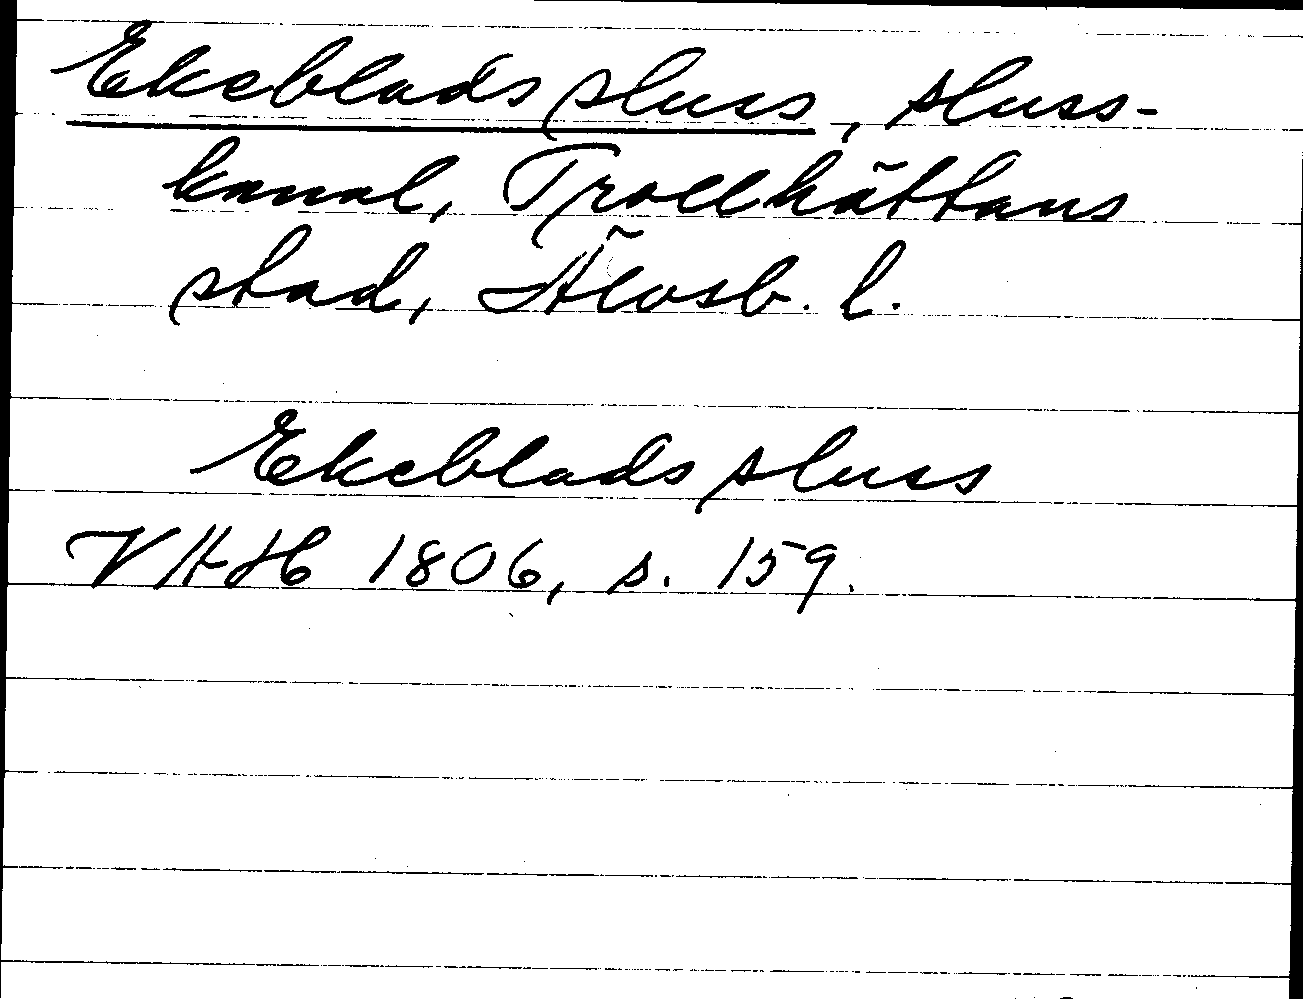 Ekeblads sluss, sluss-
kanal, Trollhättans
stad, Älvsb. l.
Ekeblads sluss
VAH 1806, s. 159.